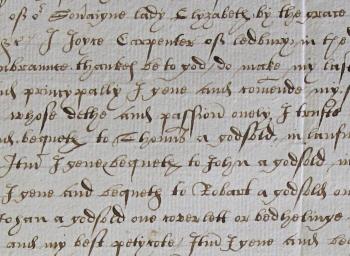 of oʳ Soveayne lady Elyzabeth by the grace
I Joyce Carpenter of ledbury in the
thanked be to god do make my last
pryncypally I geve and comende my
whose dethe and passion onely I truste
bequeth to Thomas a godsold, in
Itm I geve bequeth to John a godsold
I geve and bequeth to Robart a godsold on
a godsold one coverlett or bedhelinge
and my best petycote Itm I geve and